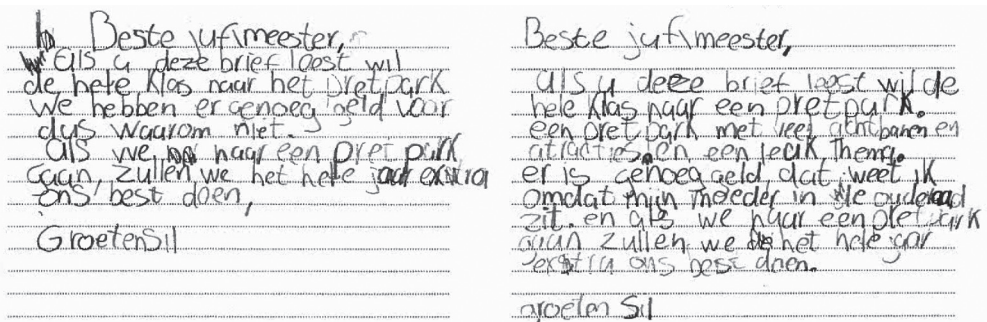 Beste juf\meester,
als u deze brief leest wil
de hele klas naar het pretpark
we hebben er genoeg geld voor
dus waarom niet.
als we naar een pretpark
gaan, zullen we het hele jaar extra
ons best doen,
Groeten Sil
Beste juf\meester,
als u deeze brief leest wil de
hele klas naar een pretpark.
een pretpark met veel achtbanen en
atracties. en een leuk thema.
er is genoeg geld dat weet ik
omdat mijn moeder in de ouderraad
zit. en als we naar een pretpark
gaan zullen we het hele jaar
exstra ons best doen.
groeten Sil